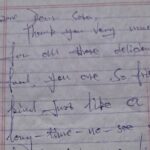 Thank you very
for all those delicious
food, you are so
kind just like a
long-time-no-see